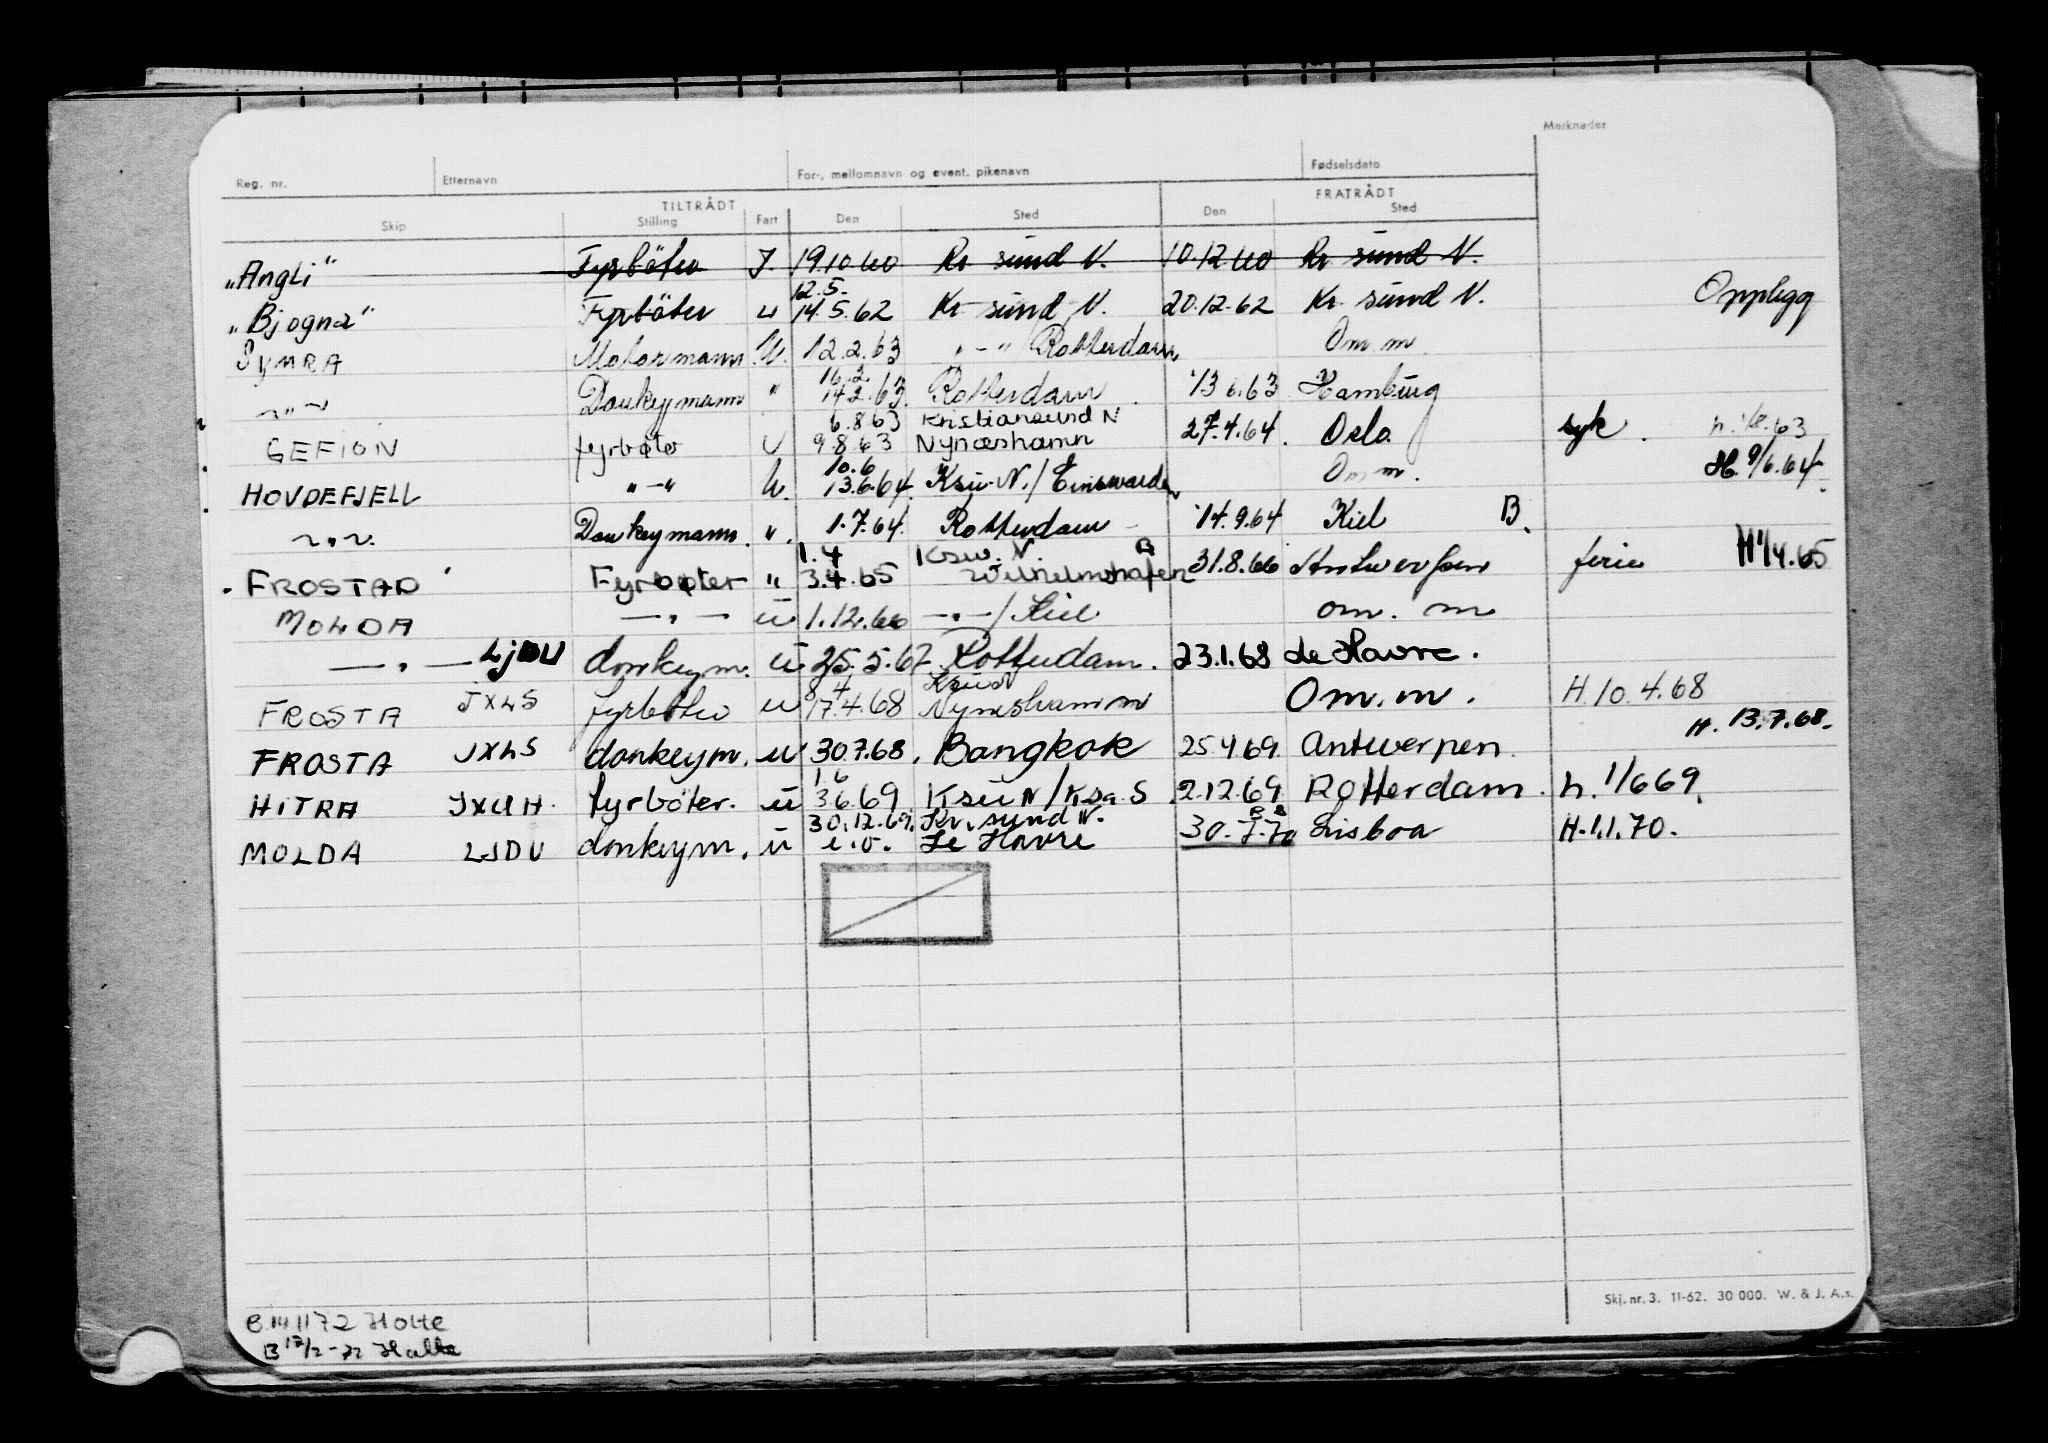 Merknader
Reg. nr. Etternavn For-, mellomnavn og event. pikenavn Fødselsdato
TILTRÅDT FRATRÅDT
Skip Stilling Fart Den Sted Den Sted
"Angli" Fyrböter J. 19.10.60 Kr sund N. 10.12.60 Kr sund N.
12.5.
"Bjogna" Fyrböter u 14.5.62 Kr sund N. 20.12.62 Kr sund N. Opplegg
SYMRA Motormann U. 12.2.63 " - " Rotterdam Om m
16.2
- " - Donkeymann " 14.2.63. Rotterdam 13.6.63 Hamburg
6.8.63 Kristiansund N
GEFION fyrbøter U 9.8.63 Nynæshamn 27.4.64. Oslo syk. h. 1/8.63
10.6
HOVDEFJELL " - " U. 13.6.64. Ksu. N./Einswarden Om m. H. 9/6.64
- " -. Donkeymann. ". 1.7.64. Rotterdam - 14.9.64 Kiel B.
1.4 Ksu. N. B
FROSTAD Fyrbøter " 3.4.65 Wilhelmshafen 31.8.66 Antwerpen ferie H 1/4.65
MOLDA - " - u 1.12.66 - " - / Kiel om. m
- " - LJDU donkeym. u 25.5.67 Rotterdam. 23.1.68 Le Havre.
8/4 KsuN
FROSTA JXLS fyrböter u 17.4.68 Nynæshamn Om. m. H. 10.4.68
H. 13.7.68.
FROSTA JXLS donkeym. u 30.7.68. Bangkok 25.4.69. Antwerpen.
1.6
HITRA JXUH. fyrböter. u 3.6.69. Ksu N/Ksa. S 2.12.69. Rotterdam. h. 1/6 69.
30.12.69. Kr. sund N.
MOLDA LJDU donkeym. u i.o. Le Havre 30.7.70 Lisboa H. 1.1.70.
Skj. nr. 3. 11-62. 30 000. W. & J. A.s.
B 14 1172 Holte
B 12/2-72 Halle